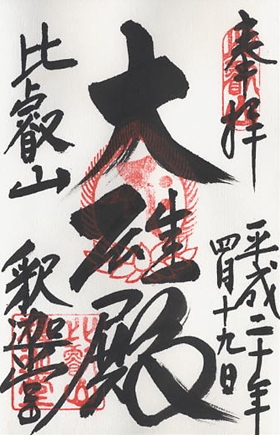 奉拝
平成二十年
四月十九日
大雄殿
比叡山
釈迦堂